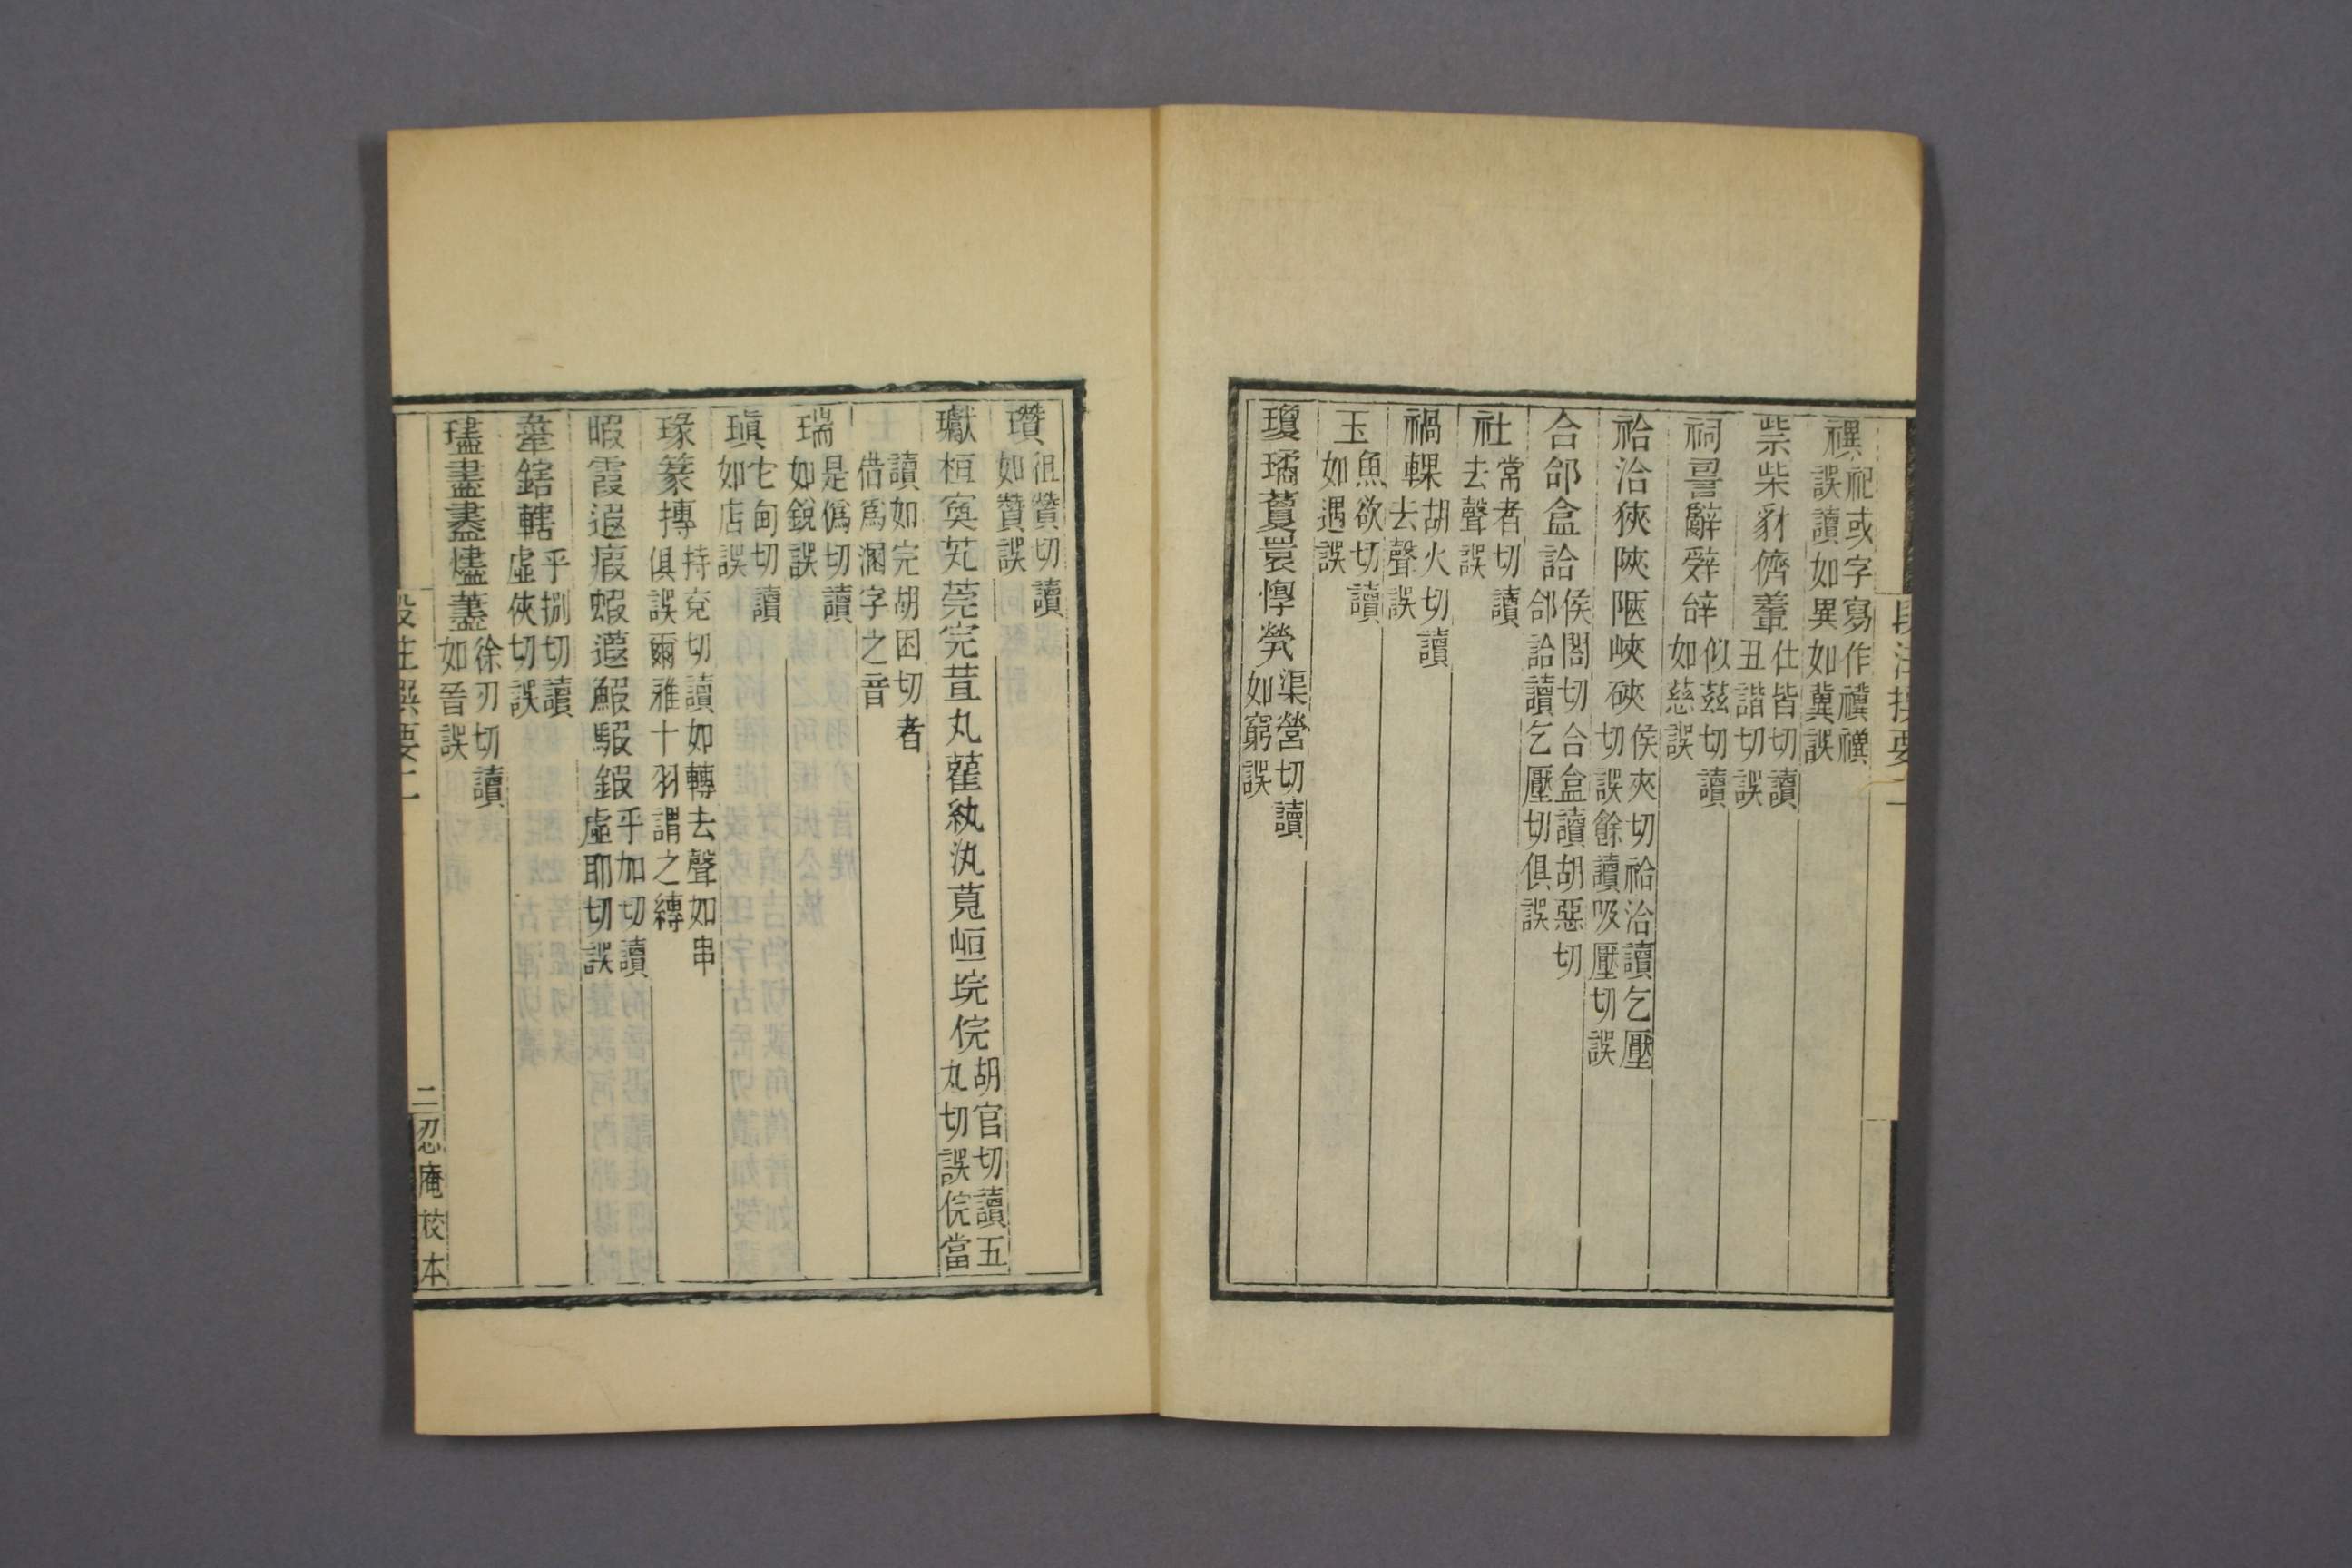 禩祀或字寫作禩禩誤讀如異如冀誤
祡柴豺儕䡨仕皆切讀丑諧切誤
祠辭辤辝似茲切讀如慈誤
祫洽狹陜陿峽硤侯夾切祫洽讀乞壓切誤餘讀吸壓切誤
合郃盒詥侯閤切合盒讀胡惡切郃詥讀乞壓切俱誤
社常者切讀去聲誤
禍輠胡火切讀去聲誤
玉魚欲切讀如遇誤
瓊璚藑睘惸煢渠營切讀如窮誤
段注撰要二
瓚徂贊切讀如贊誤
瓛桓奐芄莞完萓丸雚紈汍萈峘垸俒胡官切讀五丸切誤俒當
讀如完胡困切者借爲溷字之音
瑞是僞切讀如銳誤
瑱它甸切讀如店誤
瑑篆摶持兗切讀如轉去聲如串俱誤爾雅十羽謂之縳
暇霞遐瘕蝦蕸鰕騢鍜乎加切讀虛耶切誤
舝鎋轄乎捌切讀虛俠切誤
璶盡燼藎徐刃切讀如晉誤
段注撰要二
二
忍庵校本